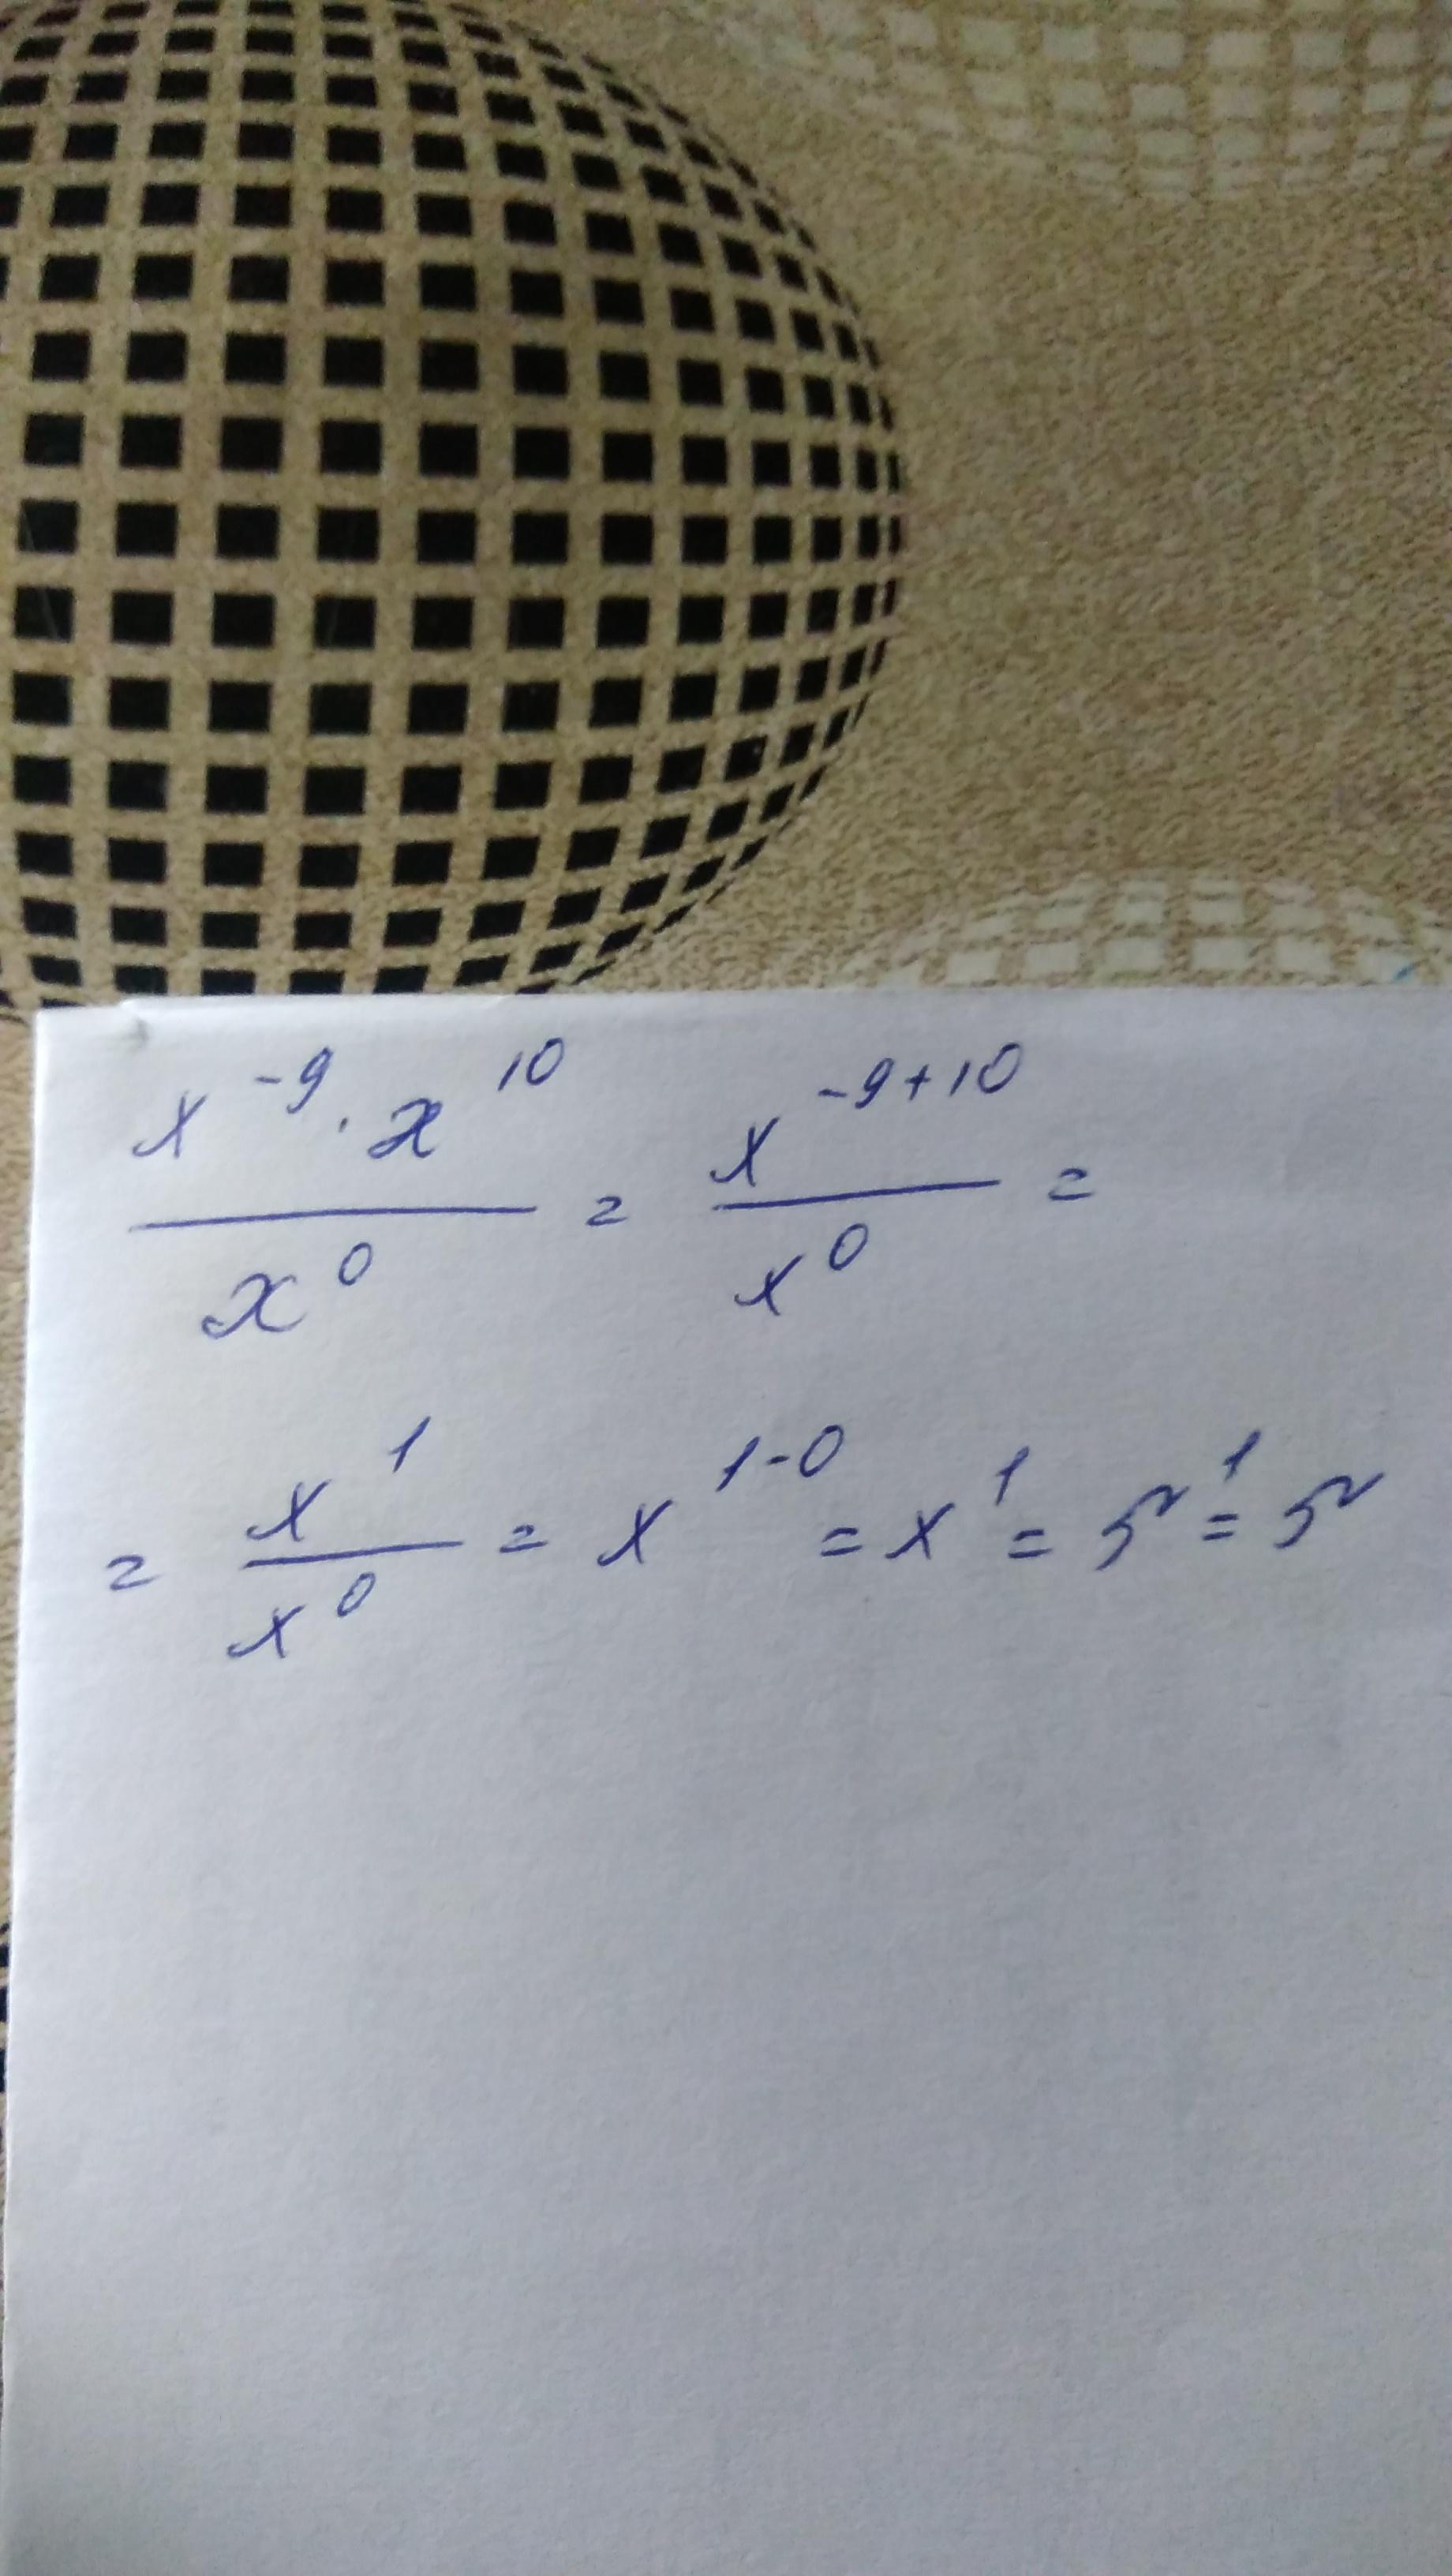 x⁻⁹ · x¹⁰ / x⁰ = x⁻⁹⁺¹⁰ / x⁰ =
= x¹ / x⁰ = x¹⁻⁰ = x¹ = 5¹ = 5